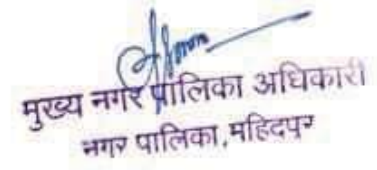 मुख्य नगर पालिका अधिकारी
नगर पालिका, महिदपुर